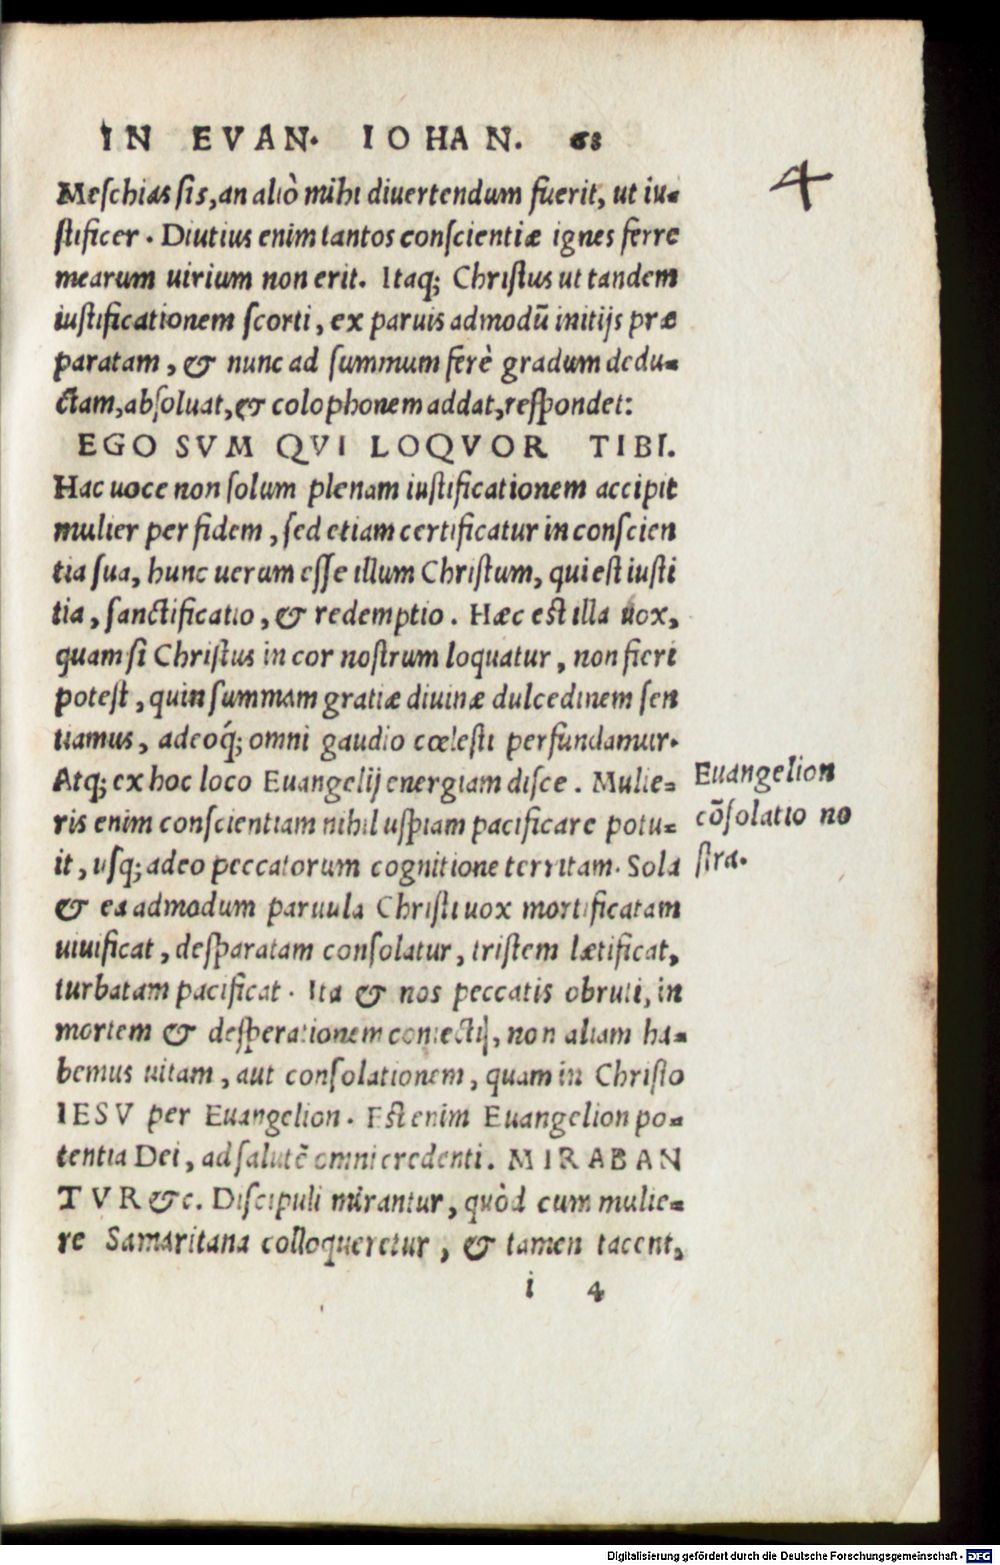 IN EVAN. IOHAN. 68
4
Meſchias ſis, an aliò mihi diuertendum fuerit, ut iu-
ſtificer. Diutius enim tantos conſcientiæ ignes ferre
mearum uirium non erit. Itaq; Chriſtus ut tandem
iuſtificationem ſcorti, ex paruis admodũ initijs præ
paratam, & nunc ad ſummum ferè gradum dedu-
ctam, abſoluat, & colophonem addat, reſpondet:
EGO SVM QVI LOQVOR TIBI.
Hac uoce non ſolum plenam iuſtificationem accipit
mulier per fidem, ſed etiam certificatur in conſcien
tia ſua, hunc uerum eſſe illum Chriſtum, qui eſt iuſti
tia, ſanctificatio, & redemptio. Hæc eſt illa uox,
quam ſi Chriſtus in cor noſtrum loquatur, non fieri
poteſt, quin ſummam gratiæ diuinæ dulcedinem ſen
tiamus, adeoq́; omni gaudio cœleſti perfundamur.
Atq; ex hoc loco Euangelij energiam diſce. Mulie-
ris enim conſcientiam nihil uſpiam pacificare potu-
it, uſq; adeo peccatorum cognitione territam. Sola
& ea admodum paruula Chriſti uox mortificatam
uiuificat, deſparatam conſolatur, triſtem lætificat,
turbatam pacificat. Ita & nos peccatis obruti, in
mortem & deſperationem coniectij, non aliam ha-
bemus uitam, aut conſolationem, quam in Chriſto
IESV per Euangelion. Eſt enim Euangelion po-
tentia Dei, ad ſalutẽ omni credenti. MIRABAN
TVR &c. Diſcipuli mirantur, quòd cum mulie-
re Samaritana colloqueretur, & tamen tacent,
i 4
Euangelion
cõſolatio no
ſtra.
Digitalisierung gefördert durch die Deutsche Forschungsgemeinschaft - DFG